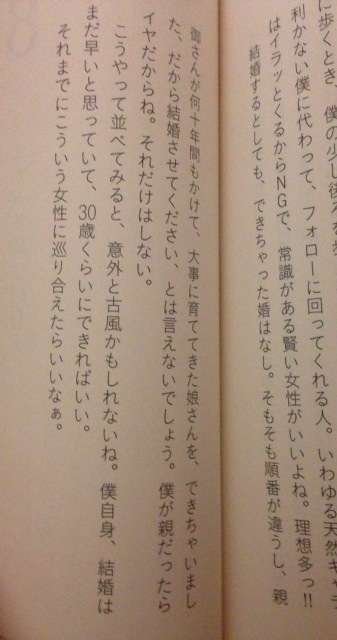 に歩くとき、僕の少し後ろを歩
利かない僕に代わって、フォローに回ってくれる人。いわゆる天然キャラ
はイラッとくるからNGで、常識がある賢い女性がいいよね。理想多っ!!
結婚するとしても、できちゃった婚はなし。そもそも順番が違うし、親
御さんが何十年間もかけて、大事に育ててきた娘さんを、できちゃいまし
た、だから結婚させてください、とは言えないでしょう。僕が親だったら
イヤだからね。それだけはしない。
こうやって並べてみると、意外と古風かもしれないね。僕自身、結婚は
まだ早いと思っていて、30歳くらいにできればいい。
それまでにこういう女性に巡り合えたらいいなぁ。